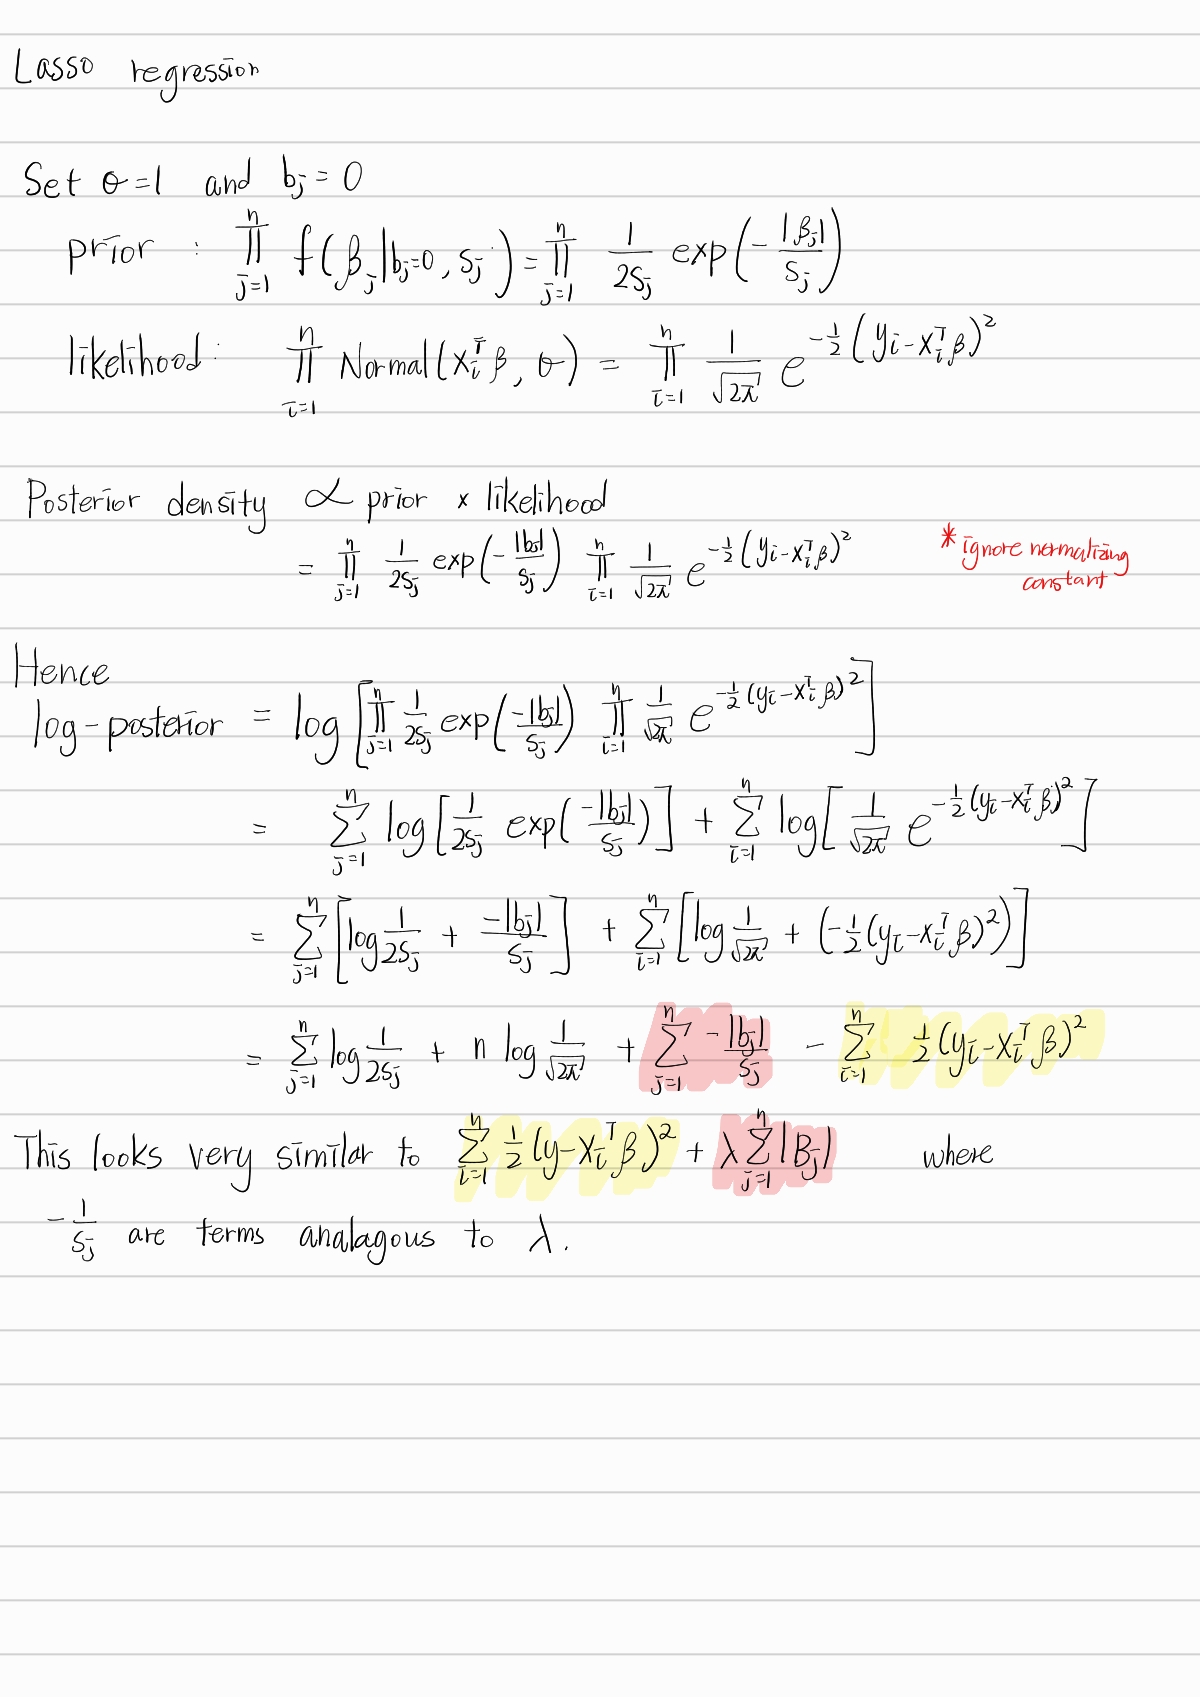 Lasso regression
Set σ=1 and bj = 0
prior : ∏_{j=1}^{n} f(βj|bj=0, Sj) = ∏_{j=1}^{n} 1/(2Sj) exp(-|βj|/Sj)
likelihood: ∏_{i=1}^{n} Normal(xi^T β, σ) = ∏_{i=1}^{n} 1/√(2π) e^{-1/2 (yi-xi^T β)^2}
Posterior density ∝ prior × likelihood
= ∏_{j=1}^{n} 1/(2Sj) exp(-|bj|/Sj) ∏_{i=1}^{n} 1/√(2π) e^{-1/2 (yi-xi^T β)^2} * ignore normalizing
constant
Hence
log-posterior = log [∏_{j=1}^{n} 1/(2Sj) exp(-|bj|/Sj) ∏_{i=1}^{n} 1/√(2π) e^{-1/2 (yi-xi^T β)^2}]
= ∑_{j=1}^{n} log[1/(2Sj) exp(-|bj|/Sj)] + ∑_{i=1}^{n} log[1/√(2π) e^{-1/2 (yi-xi^T β)^2}]
= ∑_{j=1}^{n} [log 1/(2Sj) + -|bj|/Sj] + ∑_{i=1}^{n} [log 1/√(2π) + (-1/2 (yi-xi^T β)^2)]
= ∑_{j=1}^{n} log 1/(2Sj) + n log 1/√(2π) + ∑_{j=1}^{n} -|bj|/Sj - ∑_{i=1}^{n} 1/2 (yi-xi^T β)^2
This looks very similar to ∑_{i=1}^{n} 1/2 (y-xi^T β)^2 + λ ∑_{j=1}^{n} |Bj| where
-1/Sj are terms analagous to λ.